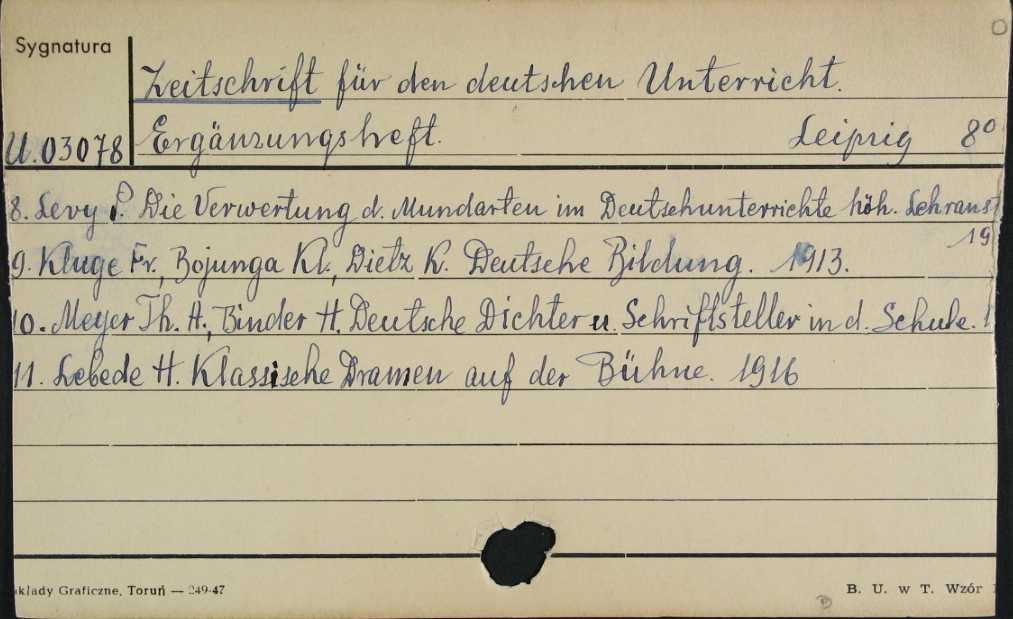 Sygnatura
Zeitschrift für den deutschen Unterricht.
U. 03078
Ergänzungsheft. Leipzig 8°
8. Levy P. Die Verwertung d. Mundarten im Deutschunterrichte höh. Lehranst
19
9. Kluge Fr., Bojunga Kl., Dietz K. Deutsche Bildung. 1913.
10. Meyer Th. A., Binder H. Deutsche Dichter u. Schriftsteller in d. Schule. 1
11. Lebede H. Klassische Dramen auf der Bühne. 1916
kłady Graficzne, Toruń — 249-47
B. U. w T. Wzór